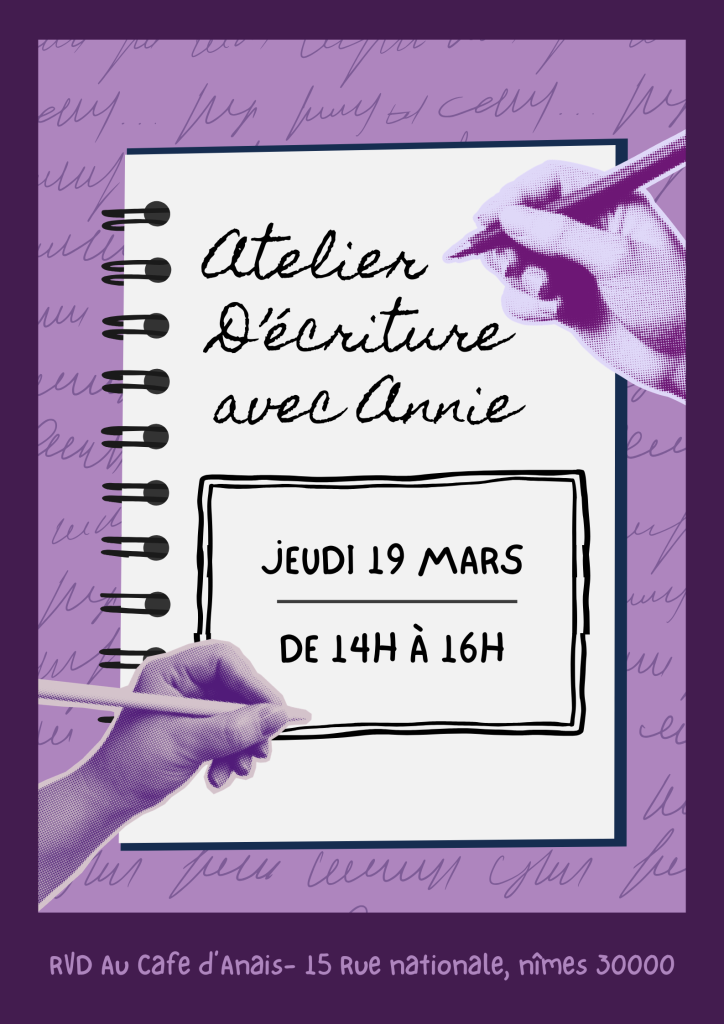 Atelier
D'écriture
avec Annie
JEUDI 19 MARS
DE 14H À 16H
RVD Au Cafe d'Anais- 15 Rue nationale, nîmes 30000